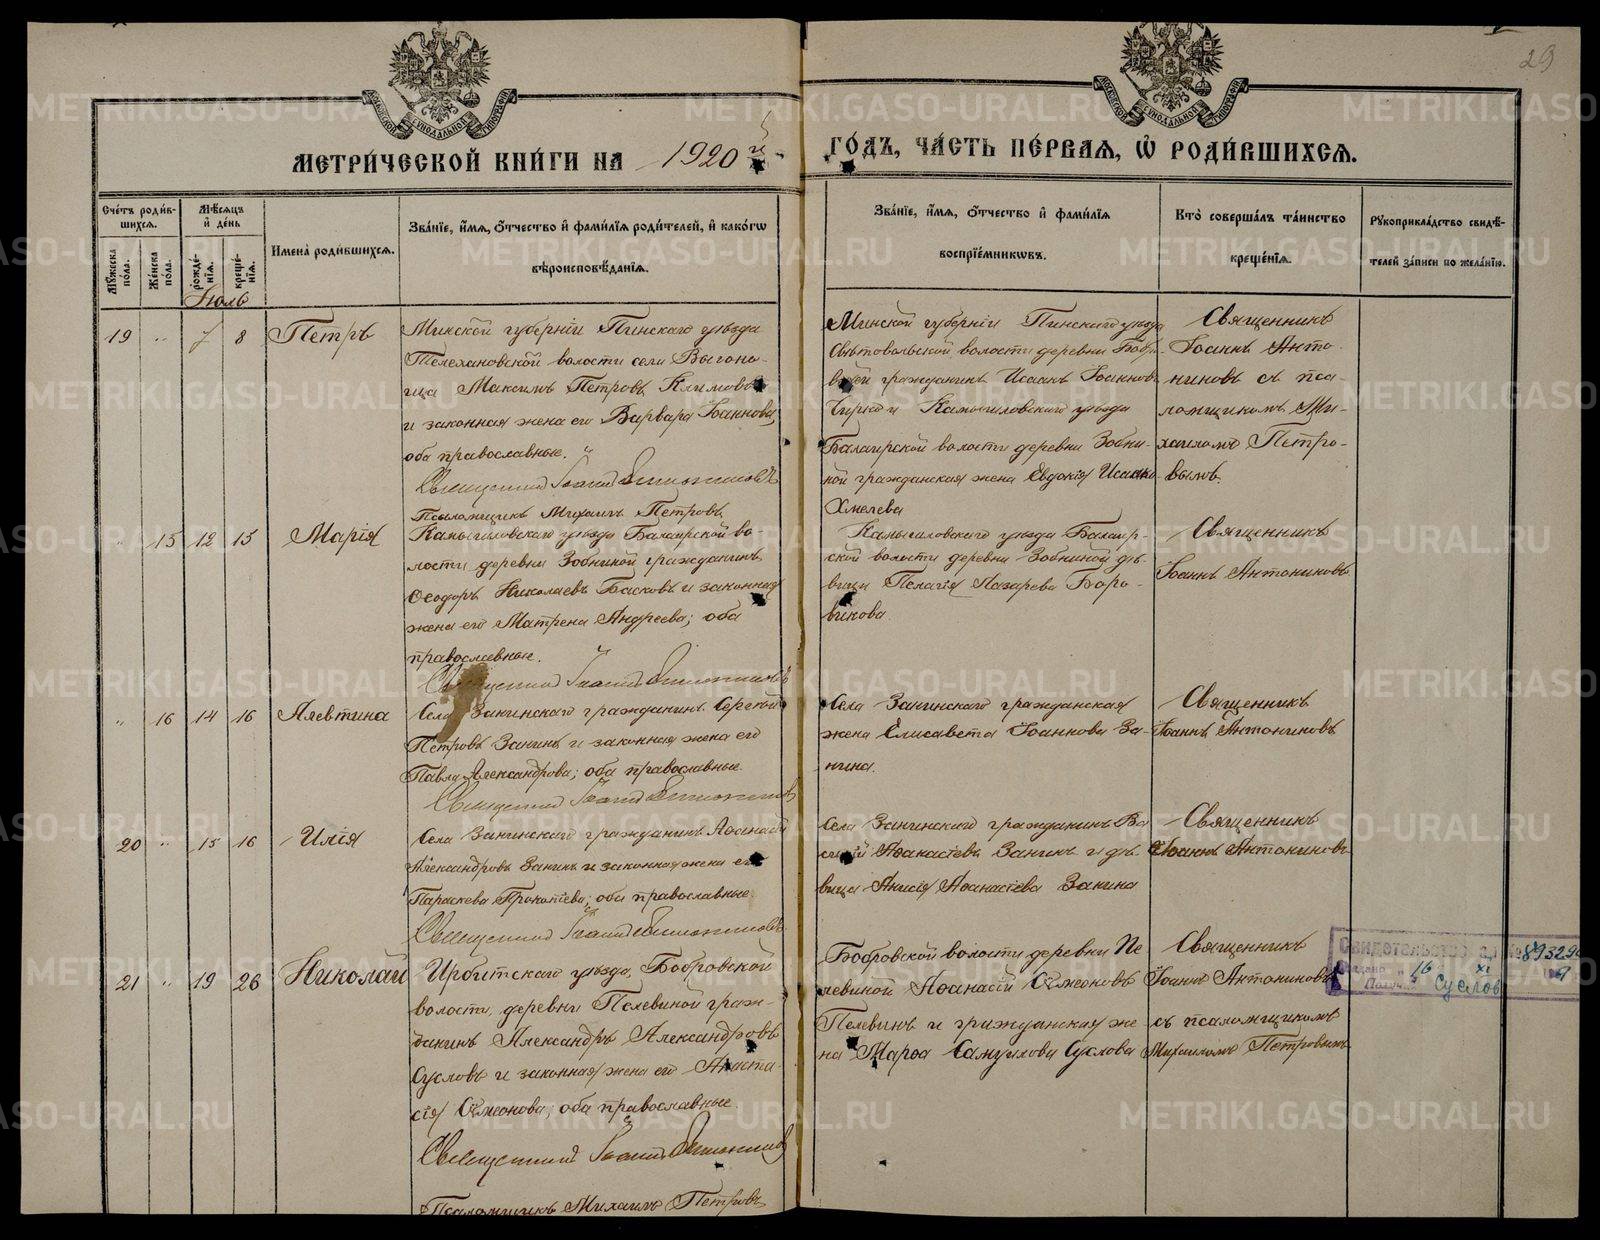 29
МЕТРИ́ЧЕСКОЙ КНИ́ГИ НА 1920 й
ГО́ДЪ, ЧА́СТЬ ПЕ́РВАЯ, Ѡ҆ РОДИ́ВШИХСЯ.
Сче́тъ роди́в-
шихся.
Мꙋ́жеска по́ла.
Же́нска пола.
Мѣ́сяцъ
и҆ де́нь
рожде́-
нїя.
креще́-
нїя.
Имена̀ роди́вшихся.
Зва́нїе, и҆́мя, ѻ҆́тчество и҆ фами́лїя роди́телей, и҆ како́гѡ
вѣроисповѣ́данїя.
Зва́нїе, и҆́мя, ѻ҆́тчество и҆ фами́лїя
воспрїе́мникѡвъ.
Кто̀ соверша́лъ та́инство
креще́нїя.
Рꙋкоприкла́дство свидѣ́-
телей за́писи по жела́нїю.
Іюль
19 " 7 8 Петръ
Минской губерніи Пинскаго уѣзда
Телехановской волости села Выгоно-
ща Максимъ Петровъ Климовъ
и законная жена его Варвара Іоаннова,
оба православные.
Священникъ Іоаннъ Антониновъ
Псаломщикъ Михаилъ Петровъ
Минской губерніи Пинскаго уѣзда
Святовольской волости деревни
гражданинъ Исаакъ Іоанновъ
и Камышловскаго уѣзда
Балаирской волости деревни Зобни-
ной гражданская жена Евдокія
Хмелева
Священникъ
Іоаннъ Анто-
ниновъ съ пса-
ломщикомъ Ми-
хаиломъ Петро-
вымъ.
" 15 12 15 Марія
Камышловскаго уѣзда Балаирской во
лости деревни Зобниной гражданинъ
Ѳеодоръ Николаевъ Басковъ и законная
жена его Матрена Андреева; оба
православные.
Священникъ Іоаннъ Антониновъ
Камышловскаго уѣзда Балаир-
ской волости деревни Зобниной дѣ-
вица Пелагія Лазарева Боро-
викова
Священникъ
Іоаннъ Антониновъ
" 16 14 16 Алевтина
Села Занинскаго гражданинъ Сергѣй
Петровъ Занинъ и законная жена его
Павла Александрова; оба православные.
Священникъ Іоаннъ Антониновъ
Села Занинскаго гражданская
жена Елисавета Іоаннова За-
нина.
Священникъ
Іоаннъ Антониновъ
20 " 15 16 Илія
Села Занинскаго гражданинъ Аѳанасій
Александровъ Занинъ и законная жена его
Параскева Прокопіева; оба православные.
Священникъ Іоаннъ Антониновъ
Села Занинскаго гражданинъ Ва
силій Аѳанасіевъ Занинъ и дѣ-
вица Анисія Аѳанасіева Занина
Священникъ
Іоаннъ Антониновъ
21 " 19 26 Николай
Ирбитскаго уѣзда, Бобровской
волости, деревни Пелевиной граж-
данинъ Александръ Александровъ
Сусловъ и законная жена его Анаста-
сія Симеонова; оба православные.
Священникъ Іоаннъ Антониновъ
Псаломщикъ Михаилъ Петровъ
Бобровской волости деревни Пе
левиной Аѳанасій Симеоновъ
Пелевинъ и гражданская же
на Марѳа Самуилова Суслова
Священникъ
Іоаннъ Антониновъ
съ псаломщикомъ
Михаиломъ Петровымъ
Свидетельство
16 XI
Суслов
METRIKI.GASO-URAL.RU